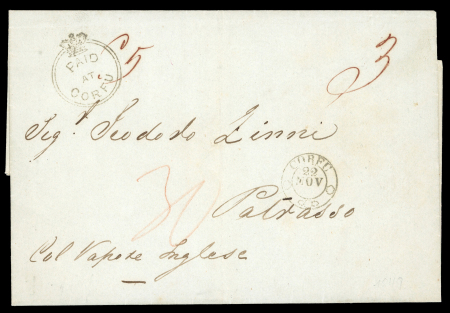 PAID
AT
CORFU
5
3
Sigr. Teododo Zinni
CORFU
22
NOV
30
Patrasso
Col Vapore Inglese